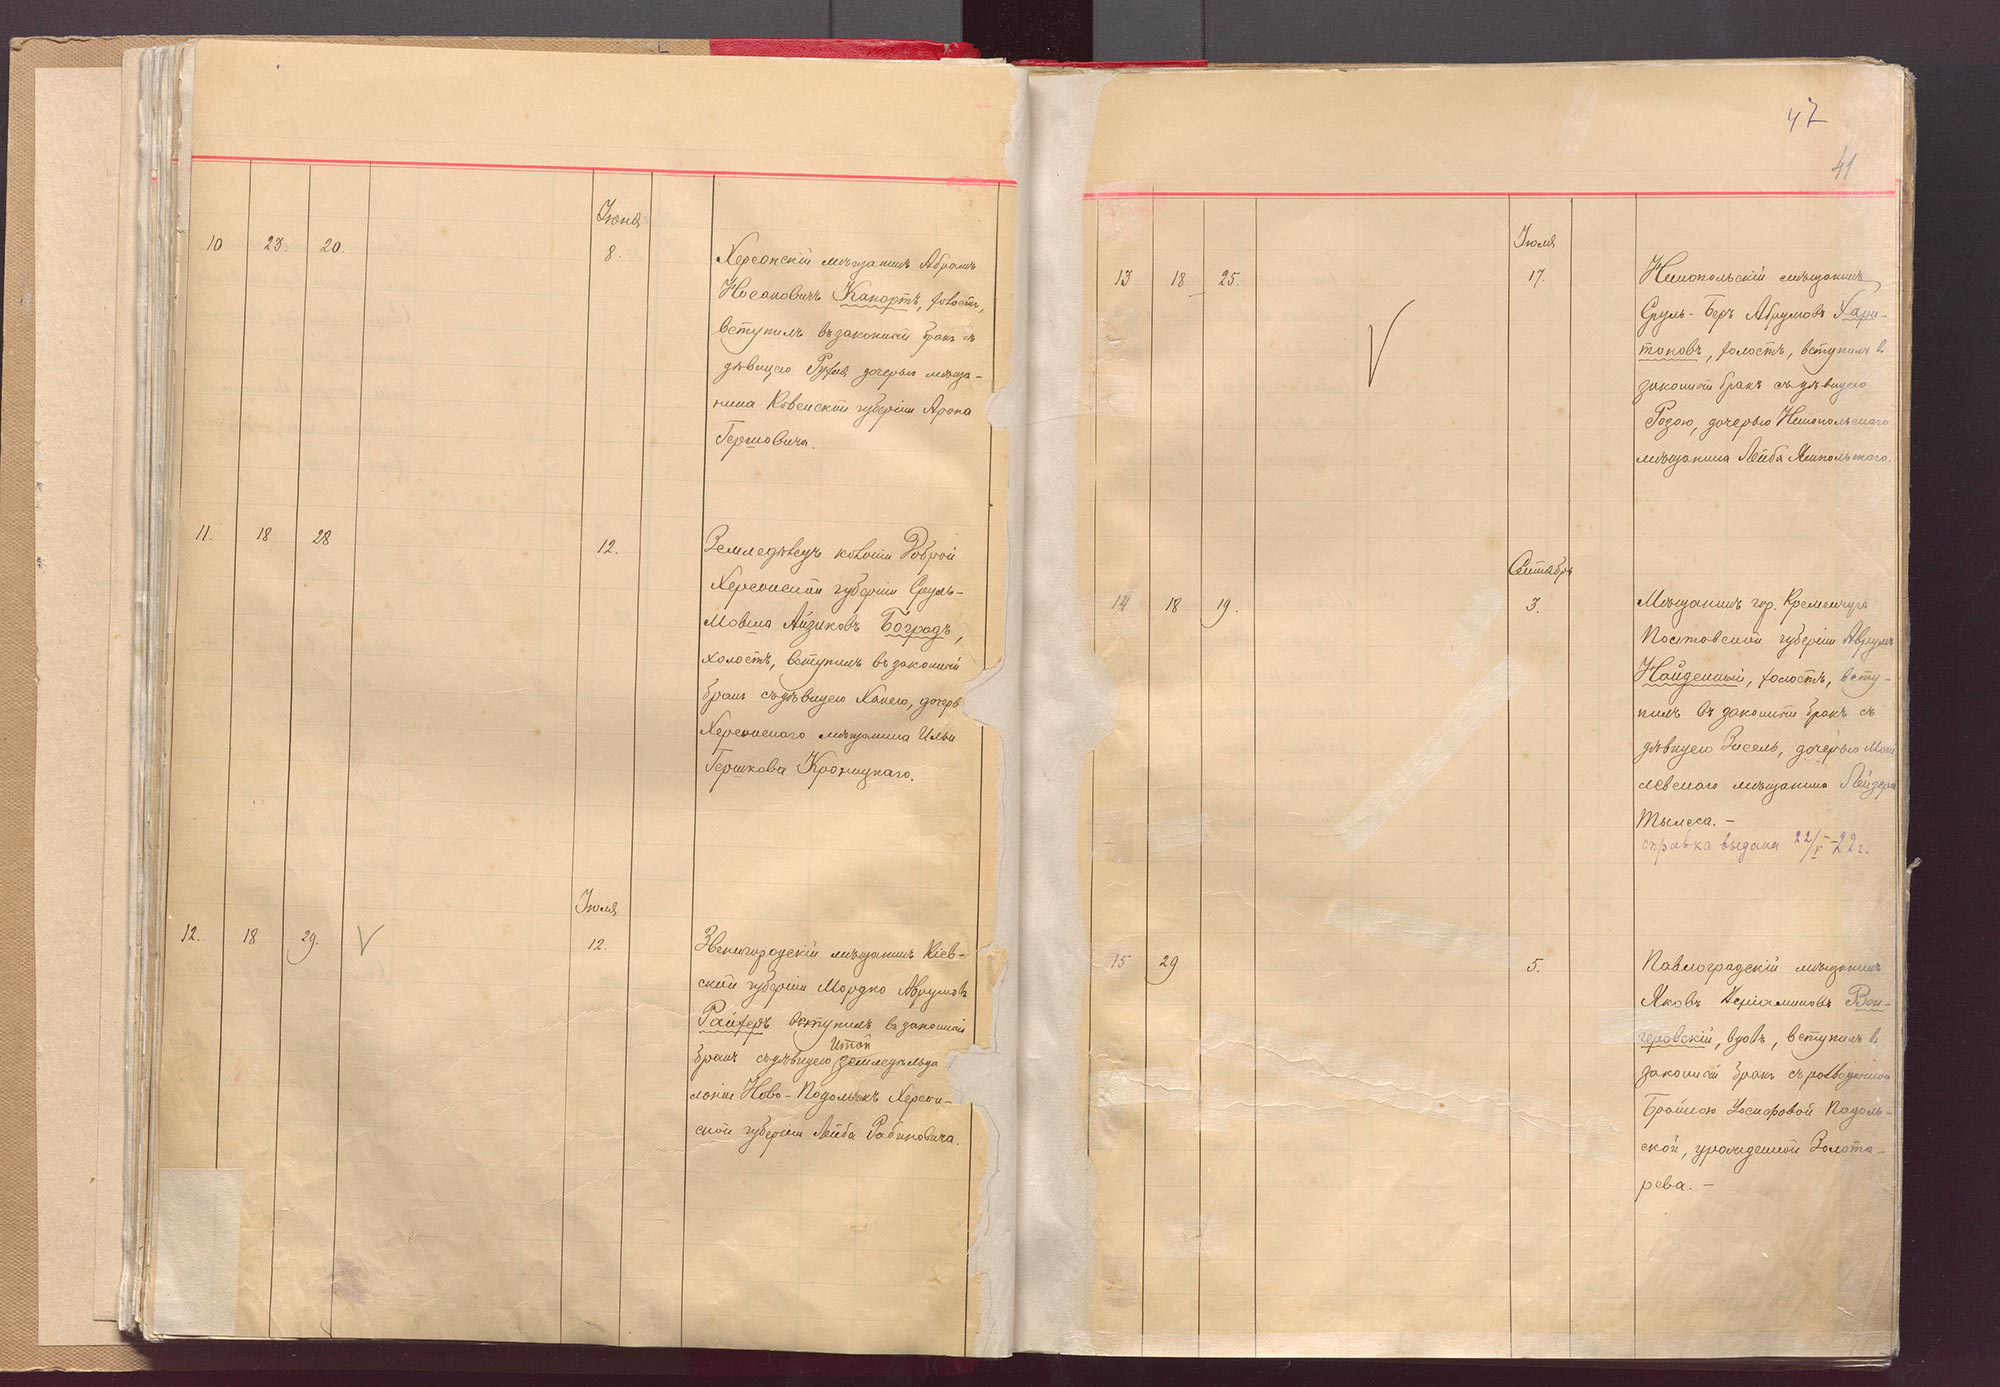 Іюня
10 23. 20. 8.
Херсонскій мѣщанинъ Абрамъ
Носановичъ Канортъ, холостъ,
вступилъ въ законный бракъ съ
дѣвицею дочерью мѣща-
нина Ковенской губерніи Арона
Гершовича.
11. 18 28 12.
Земледѣлецъ колоніи Доброй
Херсонской губерніи Сруль-
Мовша Айзиковъ Богradъ,
холостъ, вступилъ въ законный
бракъ съ дѣвицею Ханею, дочерью
Херсонскаго мѣщанина Ильи
Гершкова
Іюля
12. 18 29. V 12.
Звенигородскій мѣщанинъ Кіев-
ской губерніи Мордко Аврумовъ
Райхеръ вступилъ въ законный
Итой
бракъ съ дѣвицею земледѣльца
лоніи Ново-Подольскъ Херсон-
ской губерніи Лейба Рабиновича.
47
41
Іюля
13 18 25. V 17.
мѣщанинъ
Сруль-Беръ Абрумовъ Хари-
тоновъ, холостъ, вступилъ въ
законный бракъ съ дѣвицею
Розою, дочерью
мѣщанина Лейба Ямпольскаго.
Сентября
14 18 19. 3.
Мѣщанинъ гор. Кременчуга
Полтавской губерніи Аврумъ
Найденный, холостъ, всту-
пилъ въ законный бракъ съ
дѣвицею Зисель, дочерью Моги
левскаго мѣщанина Лейзера
Тылеса. -
справка выдана 22/V-22г.
15 29 5.
Павлоградскій мѣщанинъ
Яковъ Веніаминовъ Вен-
геровскій, вдовъ, вступилъ въ
законный бракъ съ разведенною
Брайною Іосифовой Подоль-
ской, урожденной Золота-
рева. -